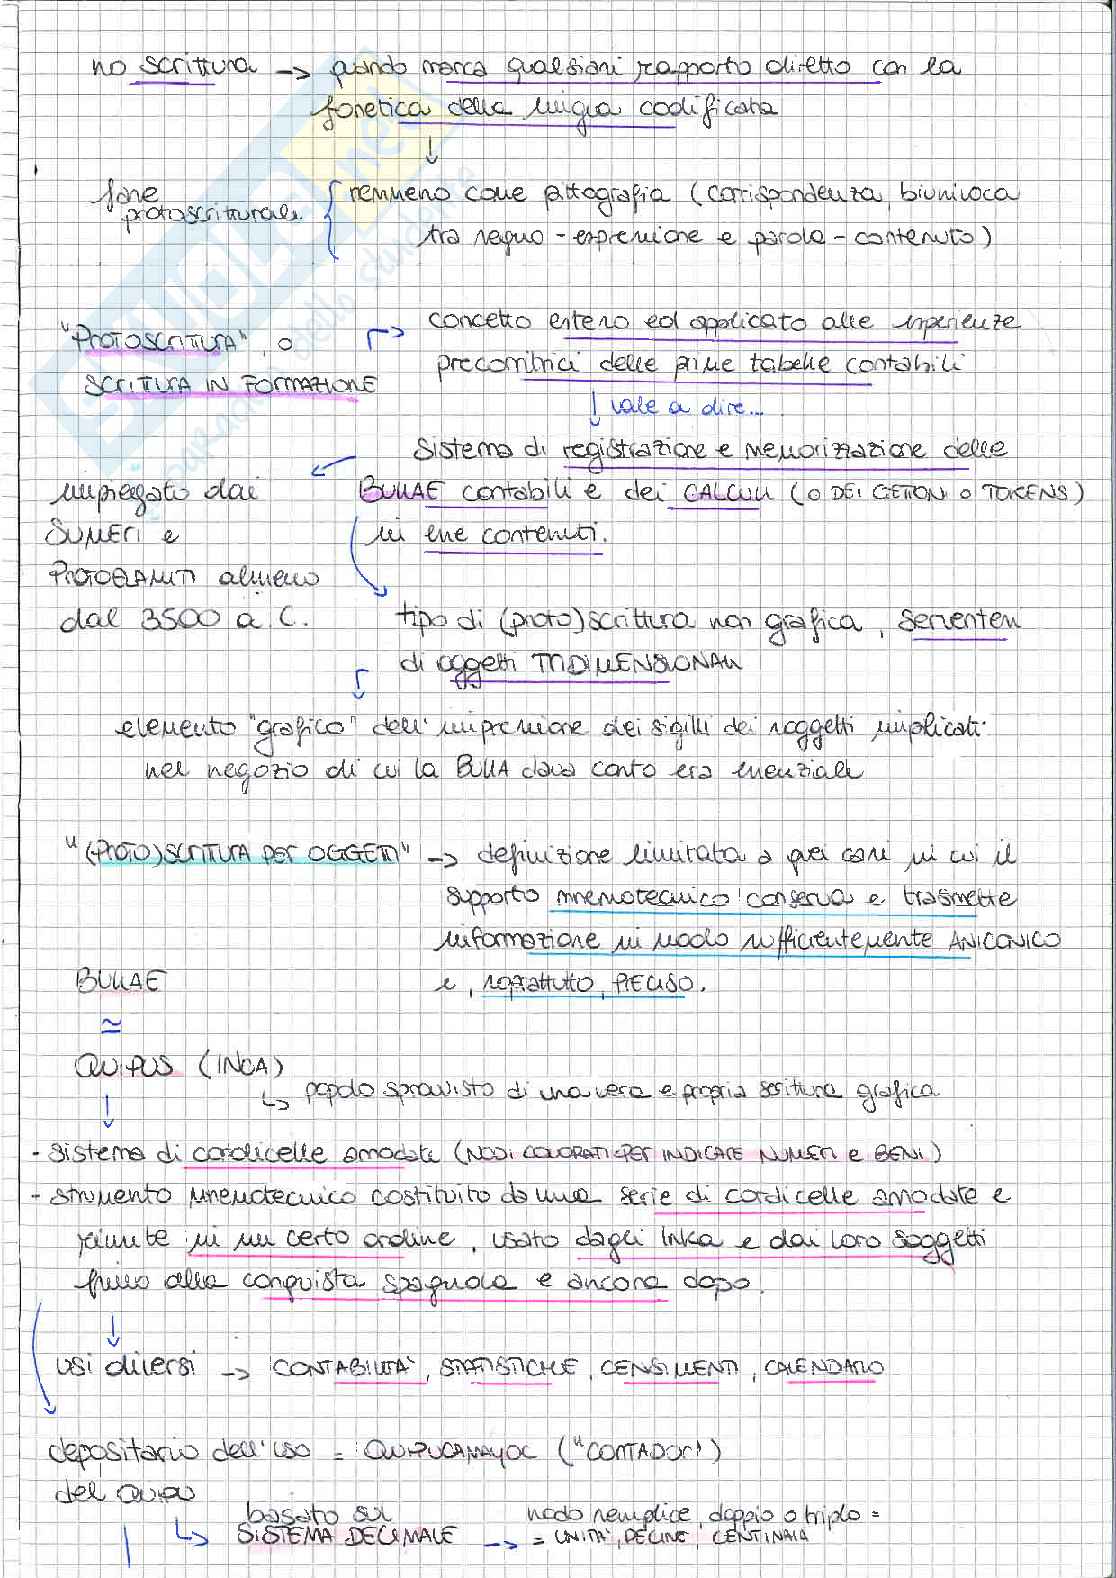 no scrittura → quando manca qualsiasi rapporto diretto con la
fonetica della lingua codificata
↓
fase
protoscritturale
nemmeno come pittografia (corrispondenza biunivoca
tra segno-espressione e parola-contenuto)
"PROTOSCRITTURA", o
SCRITTURA IN FORMAZIONE
→ concetto esteso ed applicato alle esperienze
precorritrici delle prime tabelle contabili
↓ vale a dire...
Sistema di registrazione e memorizzazione delle
BULLAE contabili e dei CALCULI (O DEI GETTONI O TOKENS)
in esse contenuti.
impiegato dai
SUMERI e
PROTOELAMITI almeno
dal 3500 a.C.
tipo di (proto)scrittura non grafica, serventesi
di oggetti TRIDIMENSIONALI
elemento "grafico" dell'impressione dei sigilli dei soggetti implicati
nel negozio di cui la BULLA dava conto era essenziale
"(PROTO)SCRITTURA PER OGGETTI" → definizione limitata a quei casi in cui il
supporto mnemotecnico conserva e trasmette
informazione in modo sufficientemente ANICONICO
e, soprattutto, PRECISO.
BULLAE
≃
QUIPUS (INCA)
↳ popolo sprovvisto di una vera e propria scrittura grafica
↓
- sistema di cordicelle annodate (NODI COLORATI PER INDICARE NUMERI e BENI)
- strumento mnemotecnico costituito da una serie di cordicelle annodate e
riunite in un certo ordine, usato dagli Inka e dai loro soggetti
fino alla conquista spagnola e ancora dopo.
↓
usi diversi → CONTABILITÀ, STATISTICHE, CENSIMENTI, CALENDARIO
depositario dell'uso = QUIPUCAMAYOC ("CONTADOR")
del QUIPU
↳ basato sul
SISTEMA DECIMALE →
nodo semplice, doppio o triplo =
= UNITÀ, DECINE, CENTINAIA